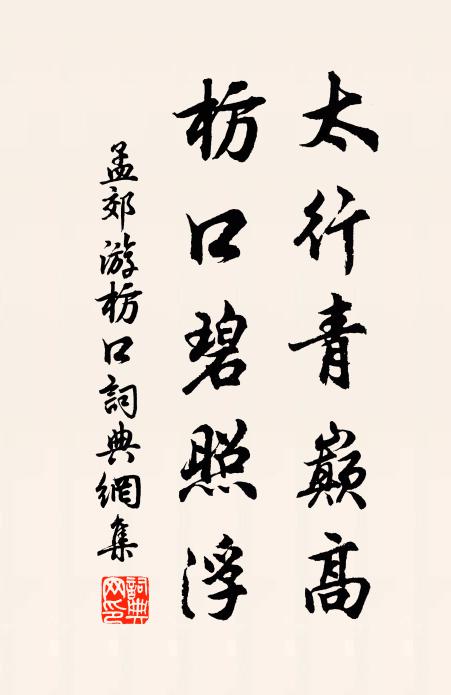 太行青巔高
枋口碧照浮
孟郊游枋口詞典網集
詞典网印